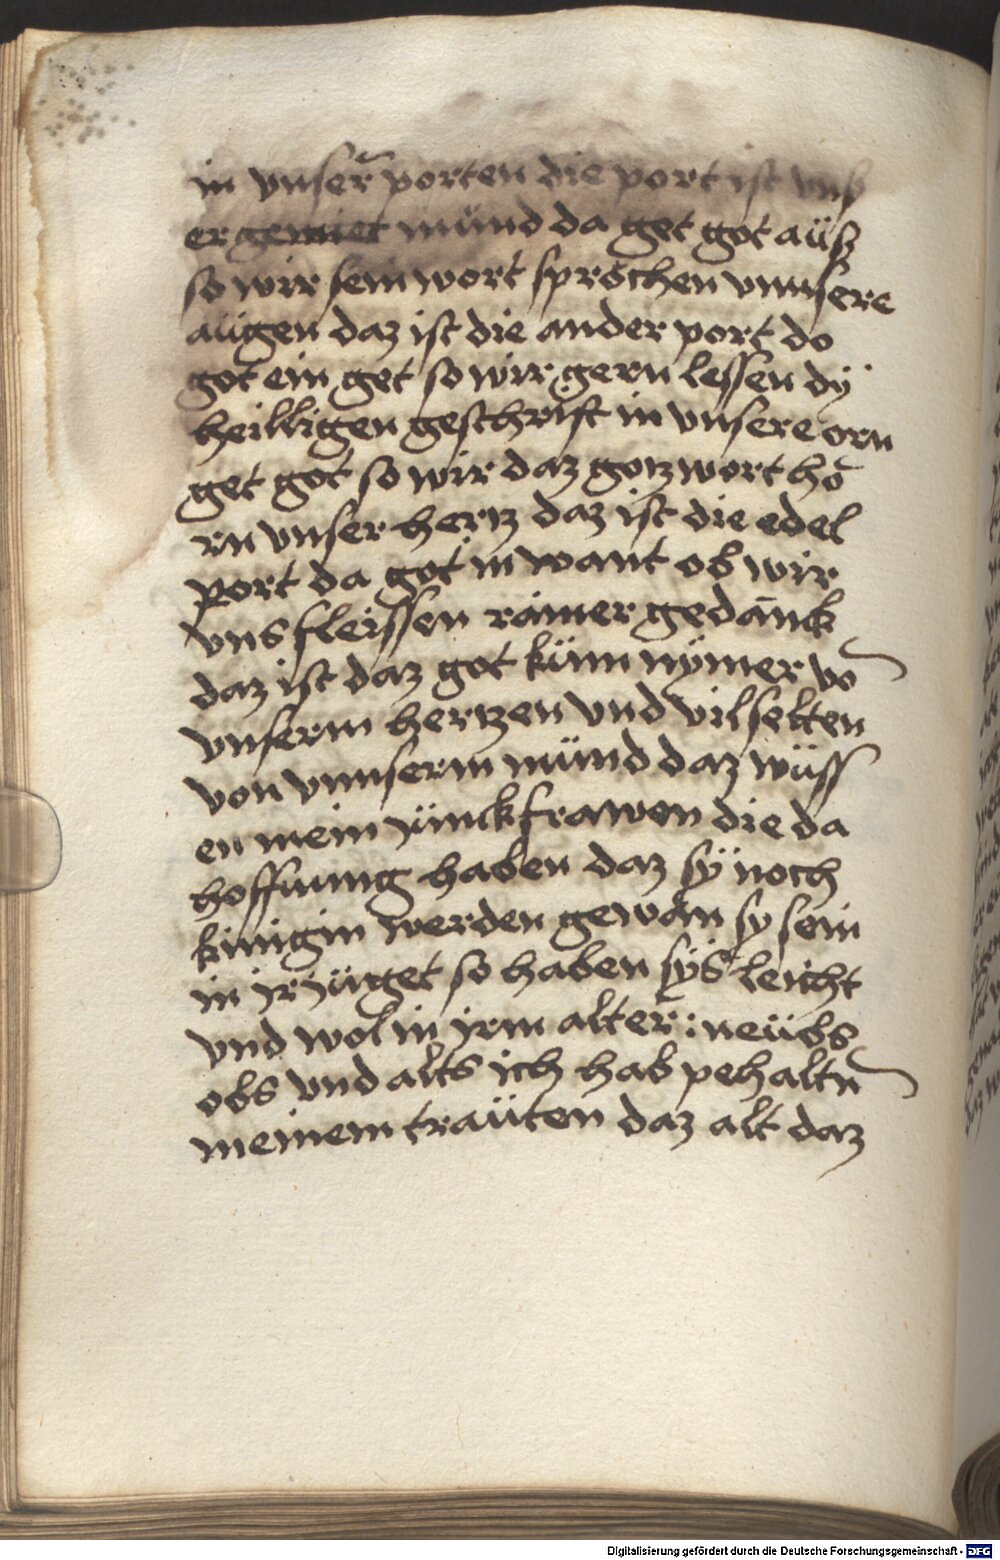 in vnser̄ porten die port ist vns
er gemet münd da get got aüß
so wir sein wort sprechen vnnsere
aügen daz ist die ander port do
got ein get so wir gern lessen dÿ
heilligen geschrift in vnsere orn
get got so wir daz gotz wort hö
rn vnser hertz daz ist die edel
port da got in want ob wir
vns fleissen rainer gedänck
daz ist daz got künn nÿmer vō
vnserm hertzen vnd vil selten
von vnnserm münd daz wüss
en mein jünckfrawen die da
hoffnung haben daz sÿ noch
künigin werden gewan sy sein
in jr jüget so haben sÿs leicht
vnd wol in jrm alter : neübs
obs vnd alts ich hab pehaltn
meinem traüten daz alt daz
Digitalisierung gefördert durch die Deutsche Forschungsgemeinschaft - DFG